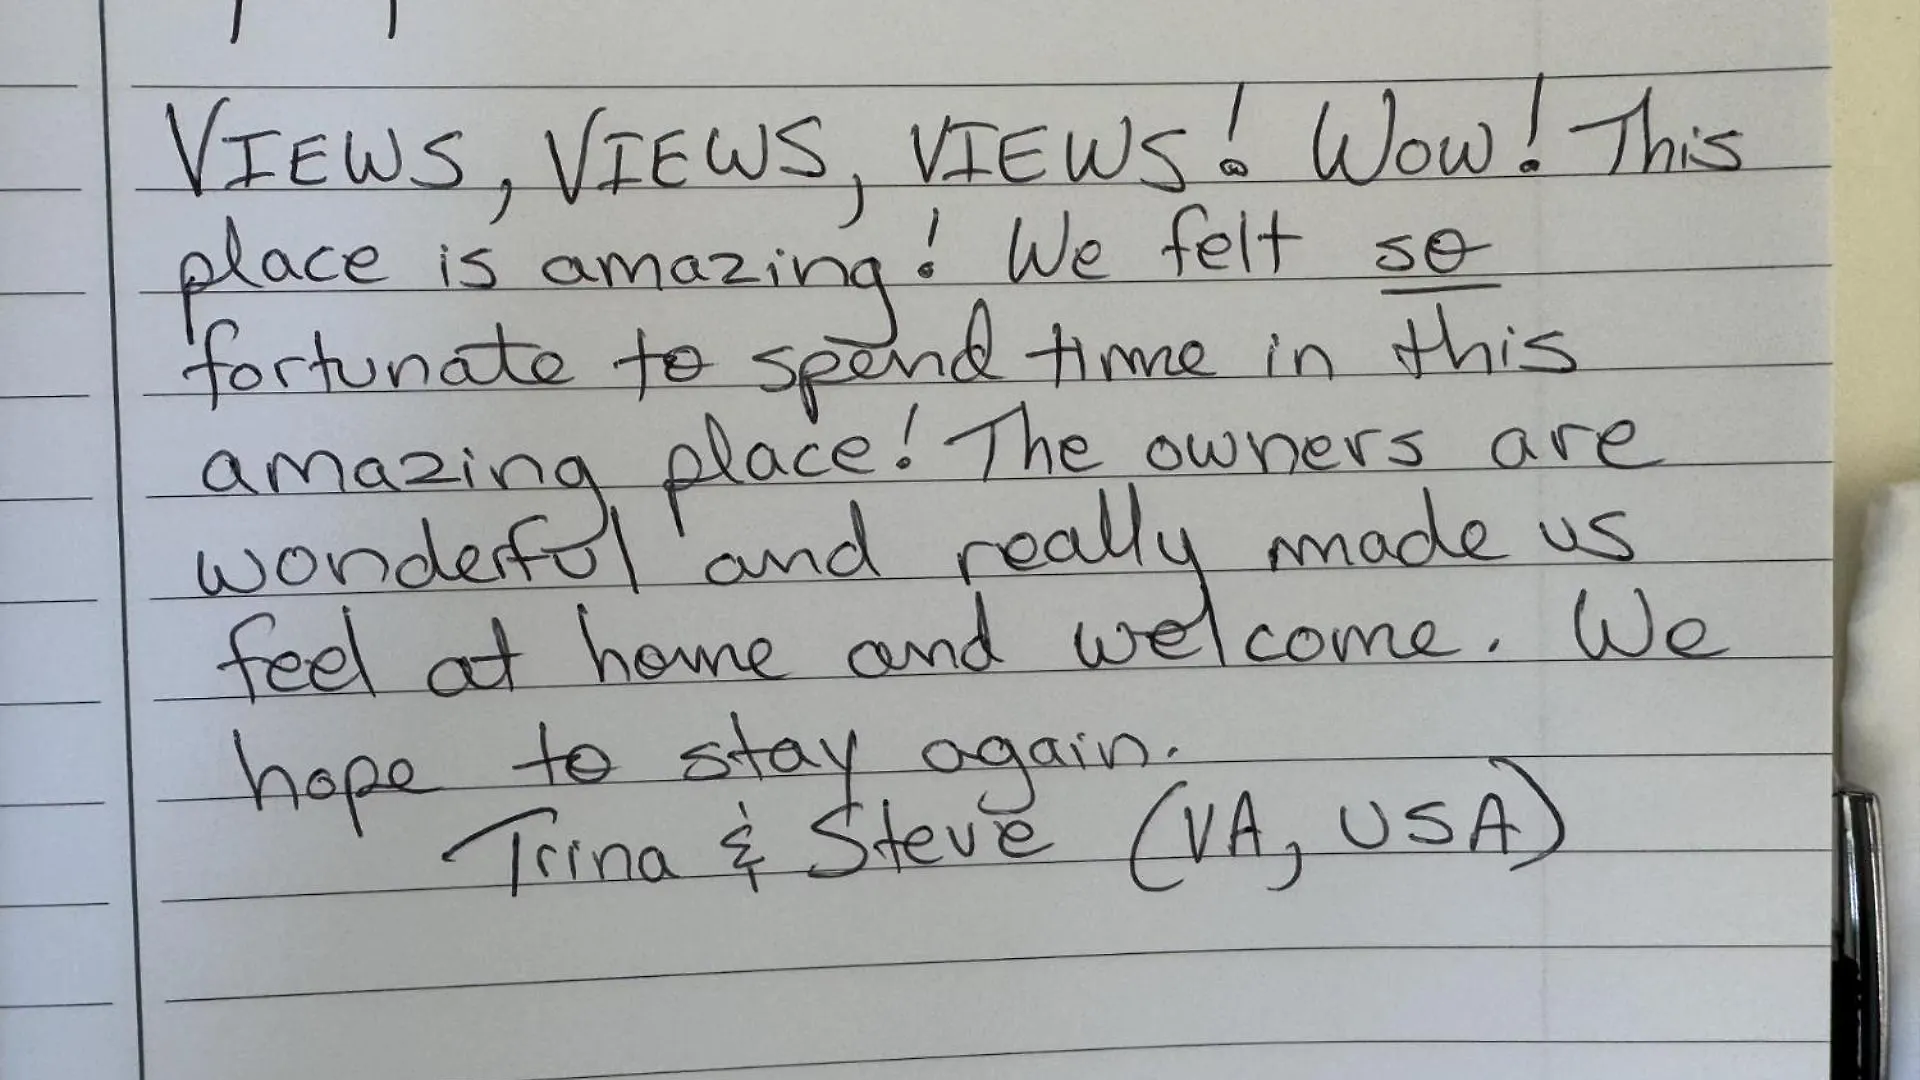 VIEWS, VIEWS, VIEWS! Wow! This
place is amazing! We felt so
fortunate to spend time in this
amazing place! The owners are
wonderful and really made us
feel at home and welcome. We
hope to stay again.
Trina & Steve (VA, USA)